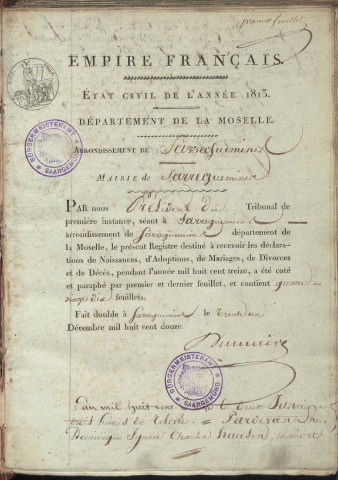 premier feuillet
EMPIRE FRANÇAIS.
ÉTAT CIVIL DE L'ANNÉE 1813.
DÉPARTEMENT DE LA MOSELLE.
ARRONDISSEMENT DE Sarreguemines
MAIRIE de Sarreguemines
BÜRGERMEISTERAMT SAARGEMÜND
PAR nous Président du Tribunal de
première instance, séant à Sarreguemines
arrondissement de Sarreguemines département de
la Moselle, le présent Registre destiné à recevoir les déclara-
tions de Naissances, d'Adoptions, de Mariages, de Divorces
et de Décès, pendant l'année mil huit cent treize, a été coté
et paraphé par premier et dernier feuillet, et contient quatre
vingt dix feuillets.
Fait double à Sarreguemines le trente un
Décembre mil huit cent douze.
BÜRGERMEISTERAMT SAARGEMÜND
L'an mil huit cent
trois heures de relevée Pardevant
Dominique Charles